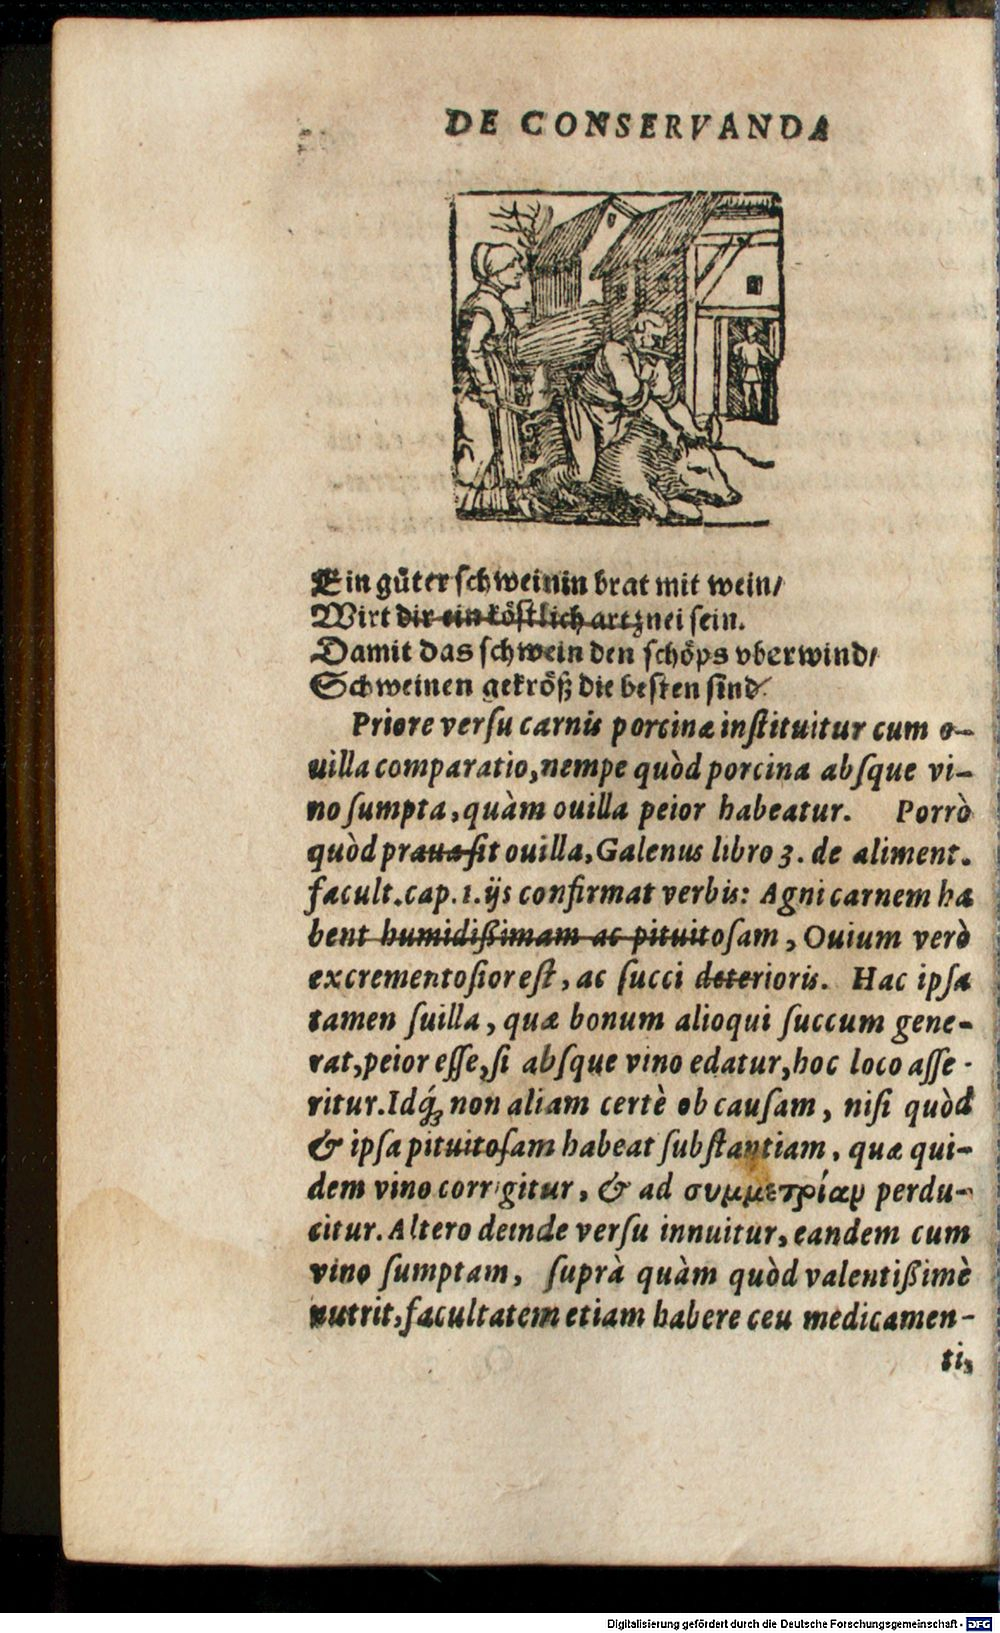 DE CONSERVANDA
Ein guͤter schweinin brat mit wein/
Wirt dir ein koͤstlich artznei sein.
Damit das schwein den schoͤps vberwind/
Schweinen gekroͤß die besten sind.
Priore versu carnis porcinæ instituitur cum o-
uilla comparatio, nempe quòd porcina absque vi-
no sumpta, quàm ouilla peior habeatur. Porrò
quòd praua sit ouilla, Galenus libro 3. de aliment.
facult. cap. 1. ijs confirmat verbis: Agni carnem ha
bent humidißimam ac pituitosam, Ouium verò
excrementosior est, ac succi deterioris. Hac ipsa
tamen suilla, quæ bonum alioqui succum gene-
rat, peior esse, si absque vino edatur, hoc loco asse-
ritur. Idq́; non aliam certè ob causam, nisi quòd
& ipsa pituitosam habeat substantiam, quæ qui-
dem vino corrigitur, & ad συμμετρίαν perdu-
citur. Altero deinde versu innuitur, eandem cum
vino sumptam, suprà quàm quòd valentißimè
nutrit, facultatem etiam habere ceu medicamen-
ti,
Digitalisierung gefördert durch die Deutsche Forschungsgemeinschaft - DFG